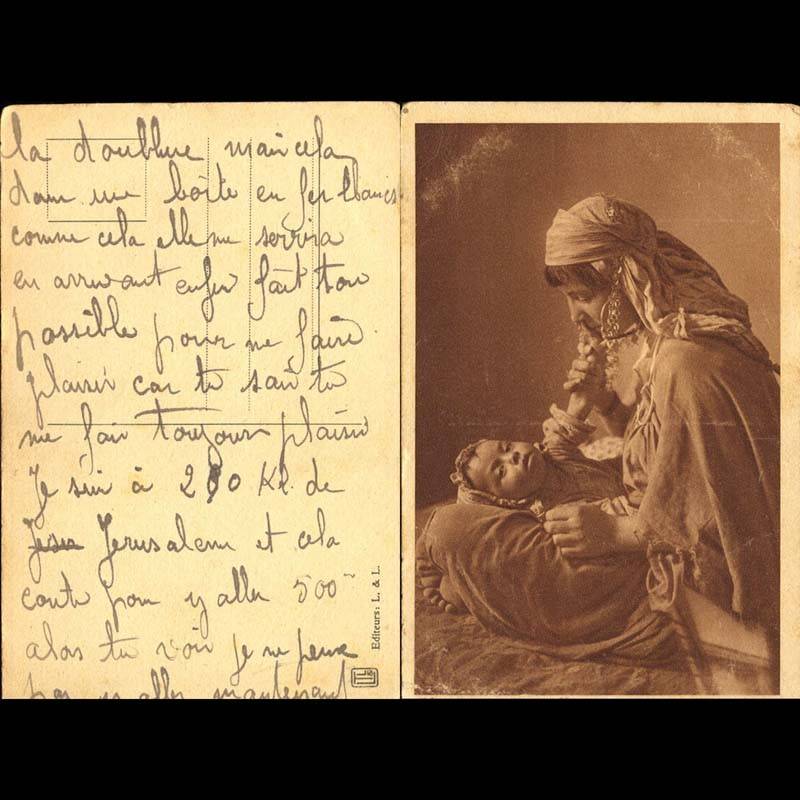 la doublure mais cela
dans une boîte en fer blanc
comme cela elle me servira
en arrivant enfin fait ton
possible pour me faire
plaisir car tu sais tu
me fais toujours plaisir
Je suis à 200 Kl. de
Jerusalem et cela
coute pour y aller 500
alors tu vois je ne peux
pas y aller maintenant
Editeurs: L. & L.